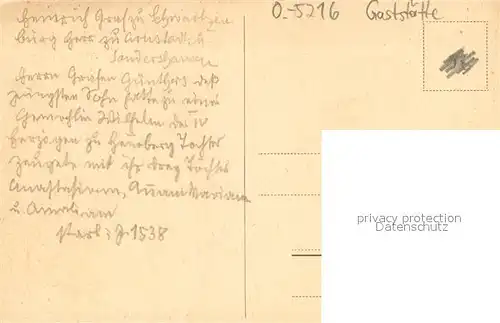 Heinrich Graf zu Schwartzen
burg Herr zu Arnstadt u
Sondershausen
Herrn Grafen Günthers deß
jüngsten Sohn hatte zu einer
Gemahlin Wilhelm des IV
Herzogen zu Henneberg Tochter
zeugete mit ihr drey Töchter
Anastasiam, Annam Mariam
u. Amaliam
starb: J. 1538
O.-5216 Gaststätte
privacy protection
Datenschutz